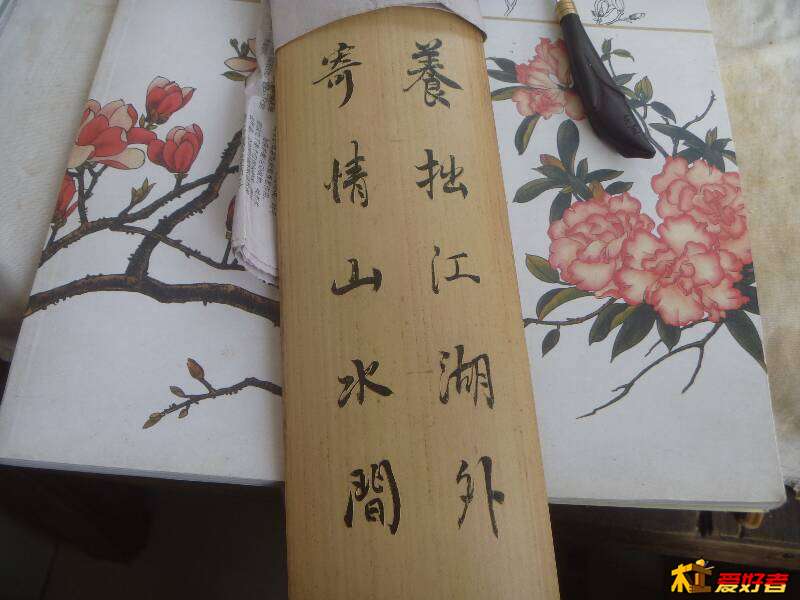 養拙江湖外
寄情山水間
爱好者